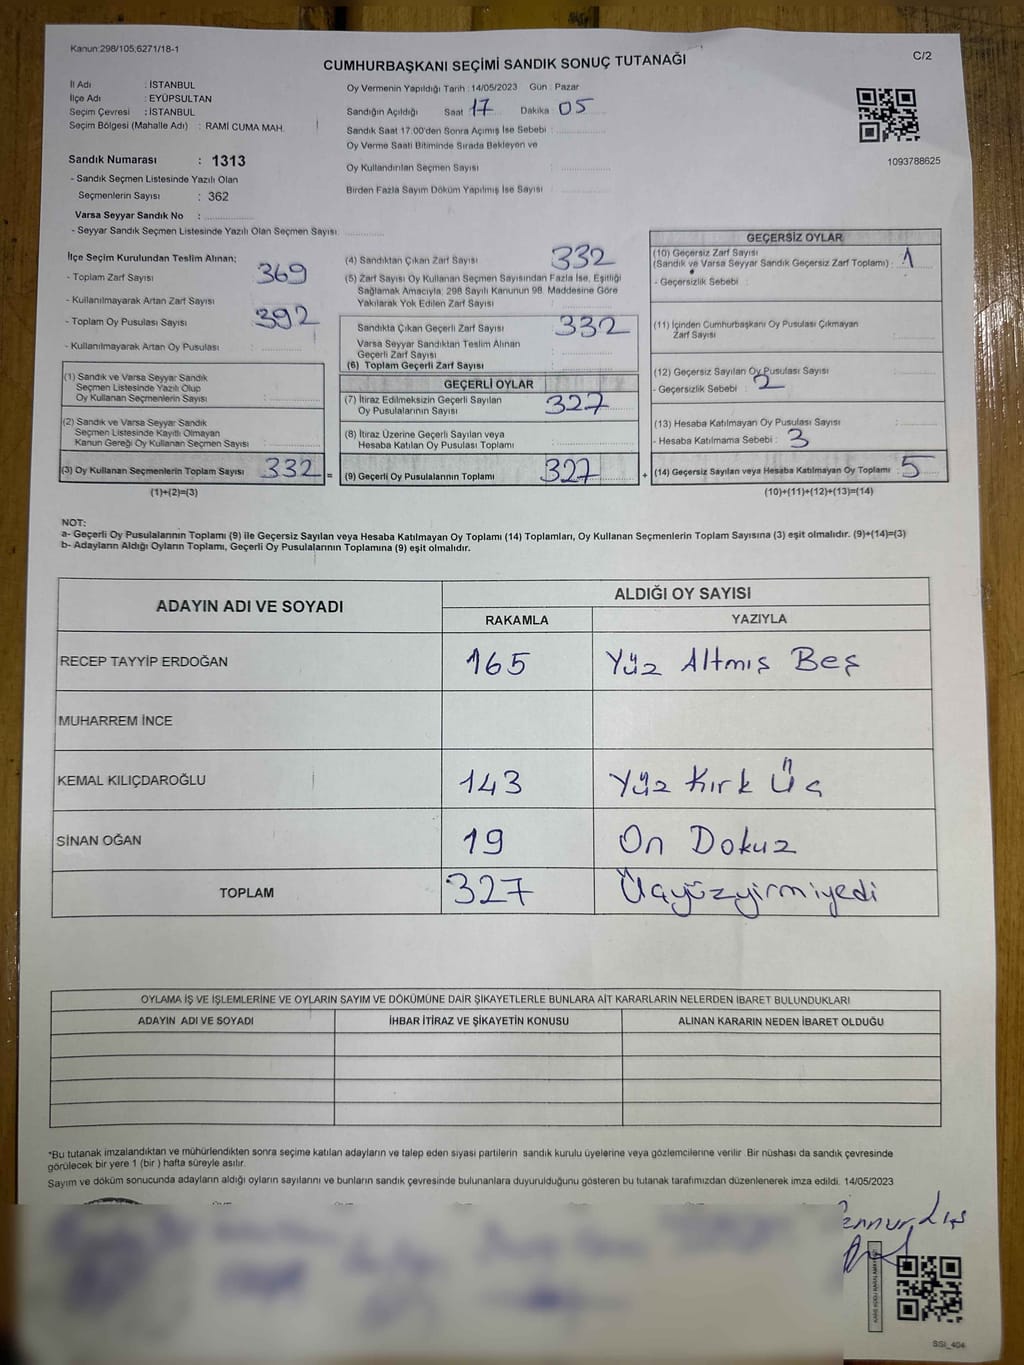 Kanun:298/105;6271/18-1
C/2
CUMHURBAŞKANI SEÇİMİ SANDIK SONUÇ TUTANAĞI
İl Adı : İSTANBUL
İlçe Adı : EYÜPSULTAN
Seçim Çevresi : İSTANBUL
Seçim Bölgesi (Mahalle Adı) : RAMİ CUMA MAH.
Oy Vermenin Yapıldığı Tarih : 14/05/2023 Gün : Pazar
Sandığın Açıldığı Saat : 17 Dakika : 05
Sandık Saat 17.00'den Sonra Açımış İse Sebebi :
Oy Verme Saati Bitiminde Sırada Bekleyen ve
Oy Kullandırılan Seçmen Sayısı :
Birden Fazla Sayım Döküm Yapılmış İse Sayısı :
1093788625
Sandık Numarası : 1313
- Sandık Seçmen Listesinde Yazılı Olan
Seçmenlerin Sayısı : 362
Varsa Seyyar Sandık No :
- Seyyar Sandık Seçmen Listesinde Yazılı Olan Seçmen Sayısı:
İlçe Seçim Kurulundan Teslim Alınan:
- Toplam Zarf Sayısı 369
- Kullanılmayarak Artan Zarf Sayısı
- Toplam Oy Pusulası Sayısı 392
- Kullanılmayarak Artan Oy Pusulası :
(1) Sandık ve Varsa Seyyar Sandık
Seçmen Listesinde Yazılı Olup
Oy Kullanan Seçmenlerin Sayısı :
(2) Sandık ve Varsa Seyyar Sandık
Seçmen Listesinde Kayıtlı Olmayan
Kanun Gereği Oy Kullanan Seçmen Sayısı :
(3) Oy Kullanan Seçmenlerin Toplam Sayısı 332 =
(1)+(2)=(3)
(4) Sandıktan Çıkan Zarf Sayısı 332
(5) Zarf Sayısı Oy Kullanan Seçmen Sayısından Fazla İse, Eşitliği
Sağlamak Amacıyla; 298 Sayılı Kanunun 98. Maddesine Göre
Yakılarak Yok Edilen Zarf Sayısı :
Sandıkta Çıkan Geçerli Zarf Sayısı 332
Varsa Seyyar Sandıktan Teslim Alınan
Geçerli Zarf Sayısı :
(6) Toplam Geçerli Zarf Sayısı :
GEÇERLİ OYLAR
(7) İtiraz Edilmeksizin Geçerli Sayılan
Oy Pusulalarının Sayısı 327
(8) İtiraz Üzerine Geçerli Sayılan veya
Hesaba Katılan Oy Pusulası Toplamı :
(9) Geçerli Oy Pusulalarının Toplamı 327 +
GEÇERSİZ OYLAR
(10) Geçersiz Zarf Sayısı
(Sandık ve Varsa Seyyar Sandık Geçersiz Zarf Toplamı) : 1
- Geçersizlik Sebebi :
(11) İçinden Cumhurbaşkanı Oy Pusulası Çıkmayan
Zarf Sayısı :
(12) Geçersiz Sayılan Oy Pusulası Sayısı :
- Geçersizlik Sebebi : 2
(13) Hesaba Katılmayan Oy Pusulası Sayısı :
- Hesaba Katılmama Sebebi : 3
(14) Geçersiz Sayılan veya Hesaba Katılmayan Oy Toplamı : 5
(10)+(11)+(12)+(13)=(14)
NOT:
a- Geçerli Oy Pusulalarının Toplamı (9) ile Geçersiz Sayılan veya Hesaba Katılmayan Oy Toplamı (14) Toplamları, Oy Kullanan Seçmenlerin Toplam Sayısına (3) eşit olmalıdır. (9)+(14)=(3)
b- Adayların Aldığı Oyların Toplamı, Geçerli Oy Pusulalarının Toplamına (9) eşit olmalıdır.
ADAYIN ADI VE SOYADI
ALDIĞI OY SAYISI
RAKAMLA YAZIYLA
RECEP TAYYİP ERDOĞAN 165 Yüz Altmış Beş
MUHARREM İNCE
KEMAL KILIÇDAROĞLU 143 Yüz Kırk Üç
SİNAN OĞAN 19 On Dokuz
TOPLAM 327 Üçyüzyirmiyedi
OYLAMA İŞ VE İŞLEMLERİNE VE OYLARIN SAYIM VE DÖKÜMÜNE DAİR ŞİKAYETLERLE BUNLARA AİT KARARLARIN NELERDEN İBARET BULUNDUKLARI
ADAYIN ADI VE SOYADI İHBAR İTİRAZ VE ŞİKAYETİN KONUSU ALINAN KARARIN NEDEN İBARET OLDUĞU
*Bu tutanak imzalandıktan ve mühürlendikten sonra seçime katılan adayların ve talep eden siyasi partilerin sandık kurulu üyelerine veya gözlemcilerine verilir. Bir nüshası da sandık çevresinde
görülecek bir yere 1 (bir) hafta süreyle asılır.
Sayım ve döküm sonucunda adayların aldığı oyların sayılarını ve bunların sandık çevresinde bulunanlara duyurulduğunu gösteren bu tutanak tarafımızdan düzenlenerek imza edildi. 14/05/2023
SSI_404